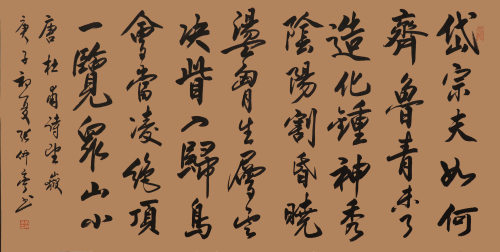 岱宗夫如何
齊魯青未了
造化鍾神秀
陰陽割昏曉
盪胸生層雲
決眥入歸鳥
會當凌絶頂
一覽眾山小
唐杜甫詩望嶽
庚子初夏